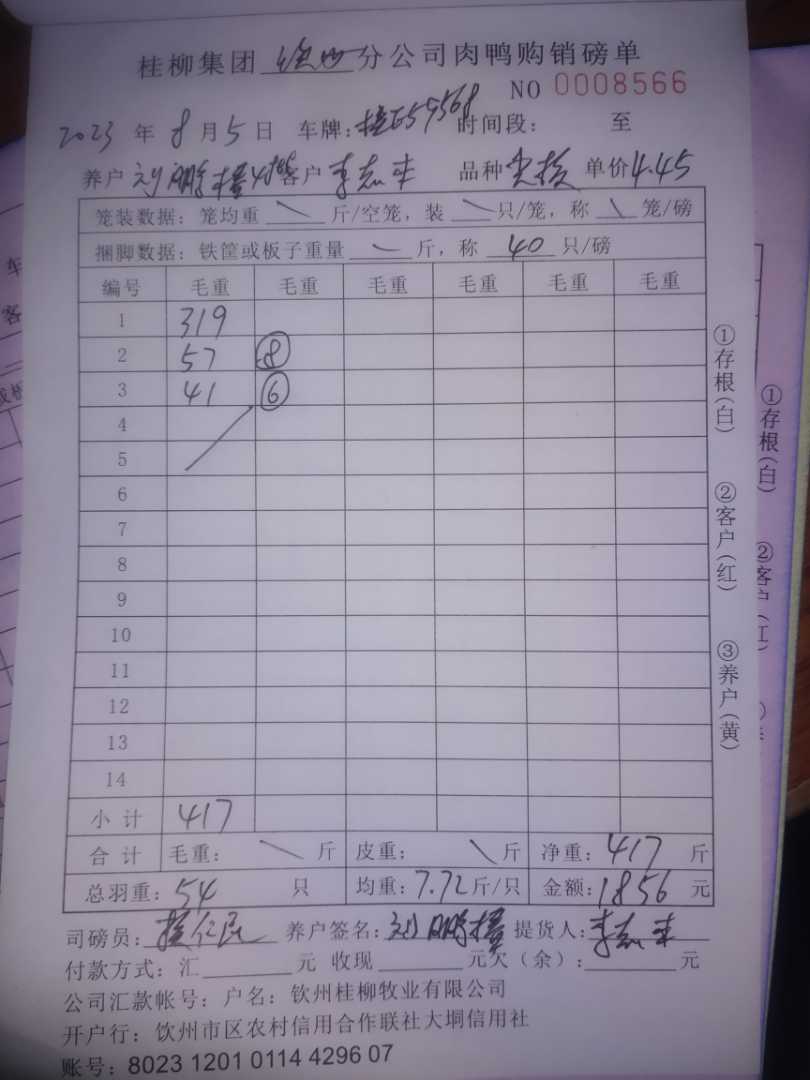 桂柳集团 分公司肉鸭购销磅单
NO 0008566
2023 年 8 月 5 日 车牌: 时间段: 至
养户 刘鹏 客户 李志 品种 单价 4.45
笼装数据: 笼均重 \ 斤/空笼, 装 \ 只/笼, 称 \ 笼/磅
捆脚数据: 铁筐或板子重量 — 斤, 称 40 只/磅
编号 毛重 毛重 毛重 毛重 毛重 毛重
1 319
2 57 ⑧
3 41 ⑥
4
5
6
7
8
9
10
11
12
13
14
小计 417
合计 毛重: \ 斤 皮重: \ 斤 净重: 417 斤
总羽重: 54 只 均重: 7.72 斤/只 金额: 1856 元
司磅员: 养户签名: 刘鹏 提货人: 李志
付款方式: 汇 元 收现 元欠(余): 元
公司汇款帐号: 户名: 钦州桂柳牧业有限公司
开户行: 饮州市区农村信用合作联社大垌信用社
账号: 8023 1201 0114 4296 07
①存根(白)
②客户(红)
③养户(黄)
①存根(白)
②客户(红)
车
客